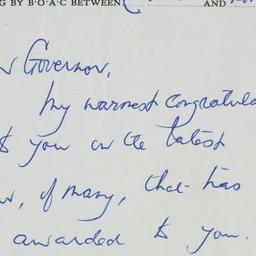 G BY B·O·A·C BETWEEN AND
Governor,
My warmest congratula
to you on the latest
, of many, that has
awarded to you.